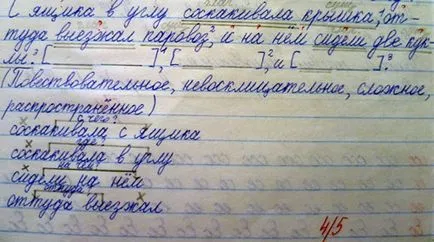 С ящика в углу соскакивала крышка, от-
туда выезжал паровоз², и на нём сидели две кук-
лы.³ [ ]¹, [ ]², и [ ]³.
(Повествовательное, невосклицательное, сложное,
распространённое)
с чего?
соскакивала с ящика
где?
соскакивала в углу
на чём?
сидели на нём
откуда?
оттуда выезжал
4/5